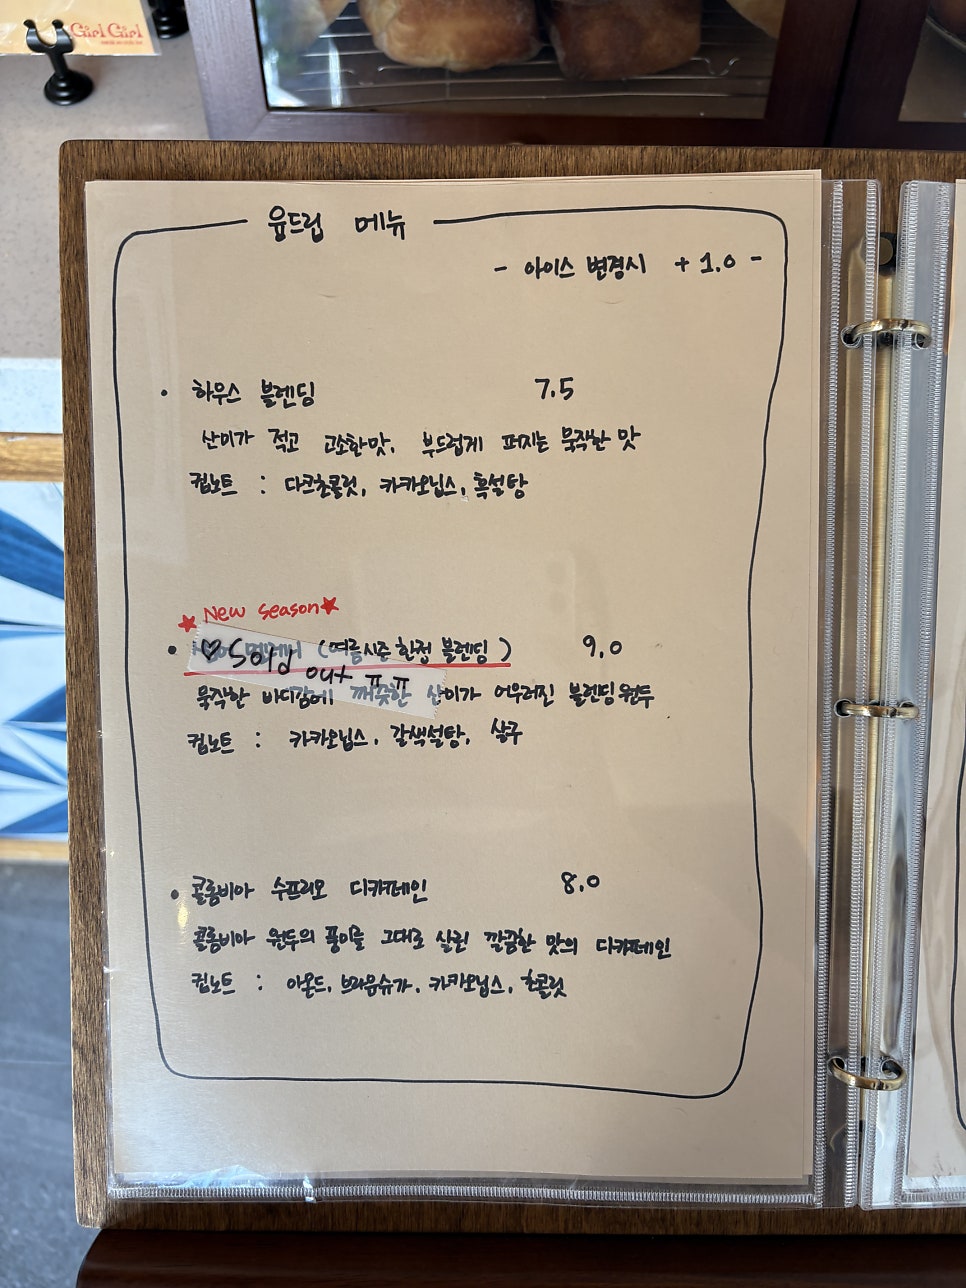 Girl Girl
융드립 메뉴
- 아이스 변경시 + 1.0 -
• 하우스 블렌딩 7.5
산미가 적고 고소한맛, 부드럽게 퍼지는 묵직한 맛
컵노트 : 다크초콜릿, 카카오닙스, 흑설탕
★ New season ★
• (여름시즌 한정 블렌딩) 9.0
♡ Sold out ㅠㅠ
묵직한 바디감에 깨끗한 산미가 어우러진 블렌딩원두
컵노트 : 카카오닙스, 갈색설탕, 살구
• 콜롬비아 수프리모 디카페인 8.0
콜롬비아 원두의 풍미를 그대로 살린 깔끔한 맛의 디카페인
컵노트 : 아몬드, 브라운슈가, 카카오닙스, 초콜릿